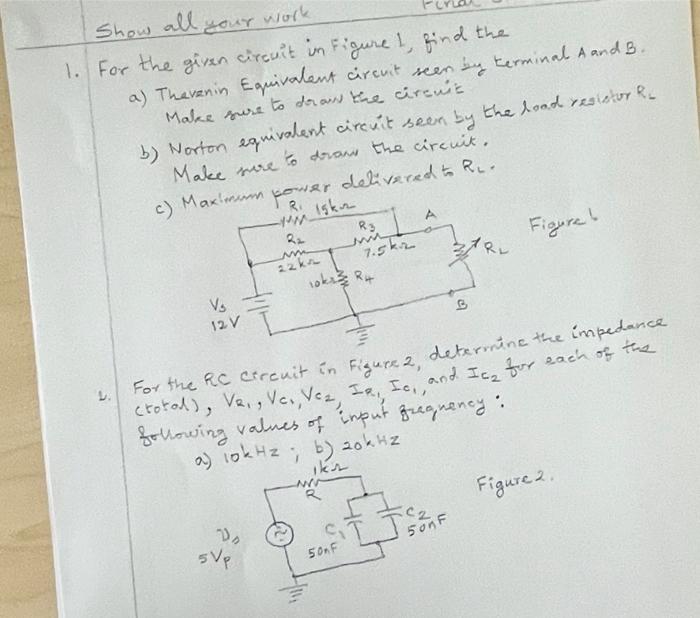 Show all your work
1. For the given circuit in Figure 1, find the
a) Thevenin Equivalent circuit seen by terminal A and B.
Make sure to draw the circuit
b) Norton equivalent circuit seen by the load resistor RL
Make sure to draw the circuit.
c) Maximum power delivered to RL.
R1 15kΩ
R2
22kΩ
R3
7.5kΩ
A
RL
10kΩ R4
B
Vs
12V
Figure 1
2. For the RC circuit in Figure 2, determine the impedance
(total), VR1, VC1, VC2, IR1, IC1, and IC2 for each of the
following values of input frequency:
a) 10kHz ; b) 20kHz
1kΩ
R
Vs
5Vp
C1
50nF
C2
50nF
Figure 2.